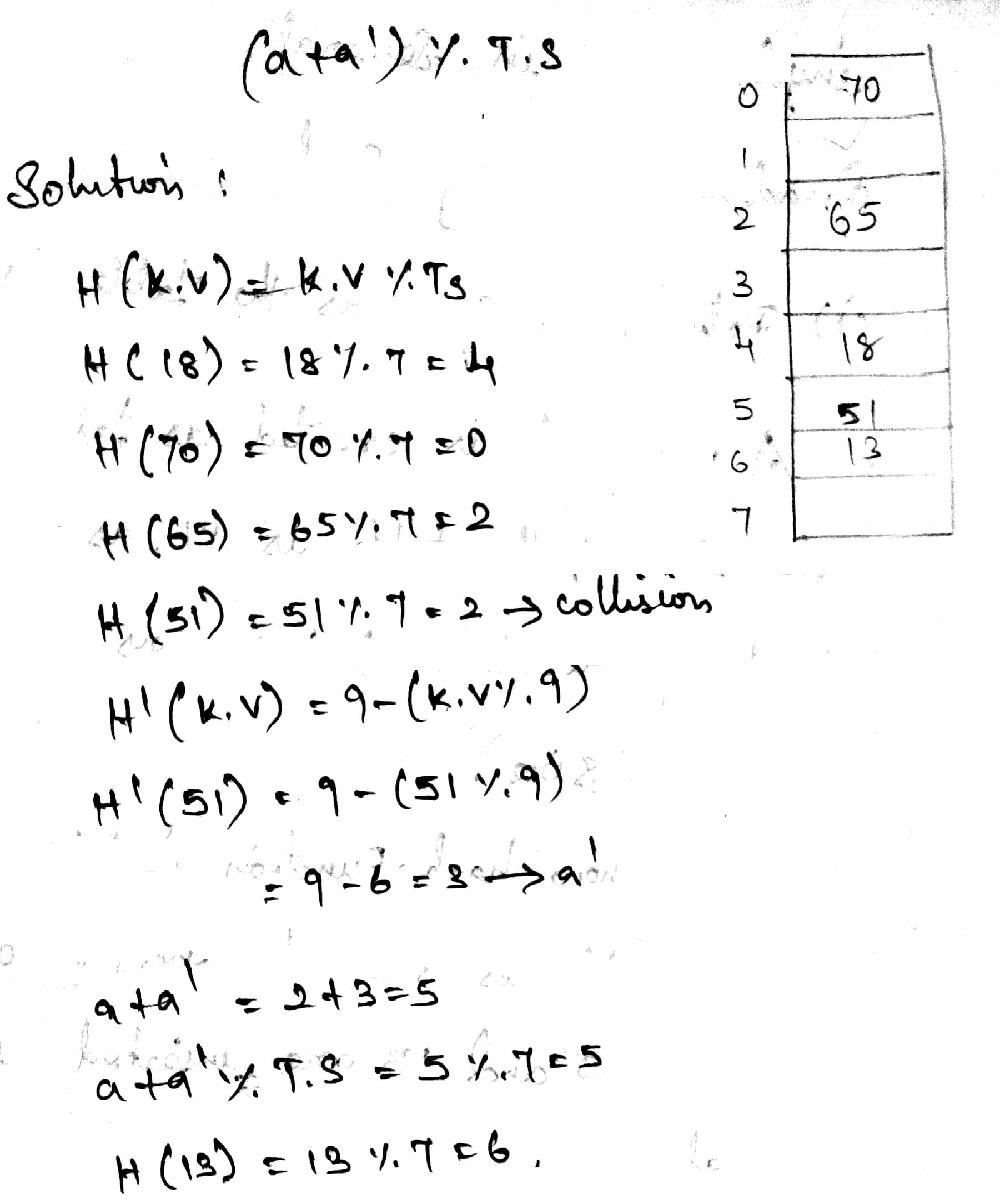 (a+a') %. T.S
Solution :
H (K.V) = K.V % Ts
H (18) = 18 % 7 = 4
H (70) = 70 % 7 = 0
H (65) = 65 % 7 = 2
H (51) = 51 % 7 = 2 → collision
H' (K.V) = 9-(K.V % 9)
H' (51) = 9-(51 % 9)
= 9-6 = 3 → a'
a+a' = 2+3=5
a+a' % T.S = 5 % 7 = 5
H (13) = 13 % 7 = 6.
0 70
1
2 65
3
4 18
5 51
6 13
7